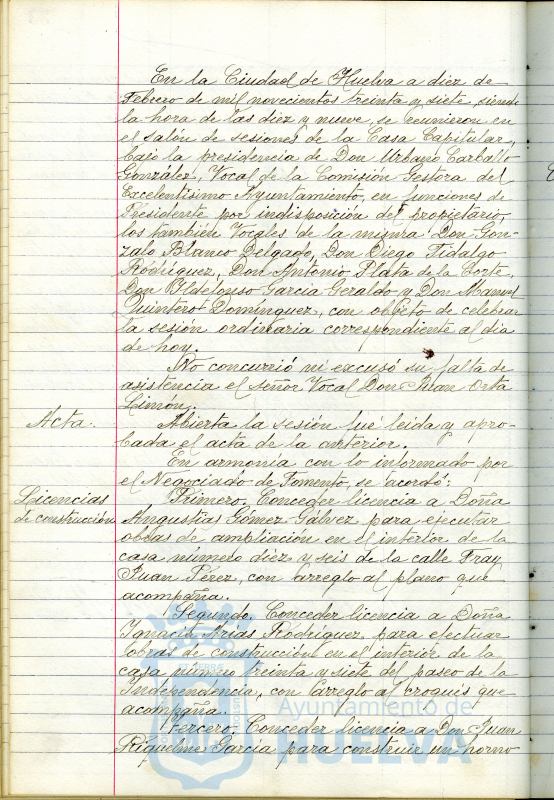 En la Ciudad de Huelva a diez de
Febrero de mil novecientos treinta y siete, siendo
la hora de las diez y nueve, se reunieron en
el salón de sesiones de la Casa Capitular,
bajo la presidencia de Don Urbano Carballo
González, Vocal de la Comisión Gestora del
Excelentísimo Ayuntamiento, en funciones de
Presidente por indisposición del propietario,
los también Vocales de la misma Don Gon-
zalo Blanco Delgado, Don Diego Fidalgo
Rodríguez, Don Antonio Plata de la Corte,
Don Ildefonso García Geraldo y Don Manuel
Quintero Domínguez, con objeto de celebrar
la sesión ordinaria correspondiente al día
de hoy.
No concurrió ni excusó su falta de
asistencia el señor Vocal Don Juan Orta
Limón.
Acta.
Abierta la sesión fué leída y apro-
bada el acta de la anterior.
En armonía con lo informado por
el Negociado de Fomento, se acordó:
Licencias
de construcción
Primero. Conceder licencia a Doña
Angustias Gómez Gálvez para ejecutar
obras de ampliación en el interior de la
casa número diez y seis de la calle Fray
Juan Pérez, con arreglo al plano que
acompaña.
Segundo. Conceder licencia a Doña
Ignacia Arias Rodríguez, para efectuar
obras de construcción en el interior de la
casa número treinta y siete del paseo de la
Independencia, con arreglo al croquis que
acompaña.
Tercero. Conceder licencia a Don Juan
Riquelme García para construir un horno
Ayuntamiento de
HUELVA